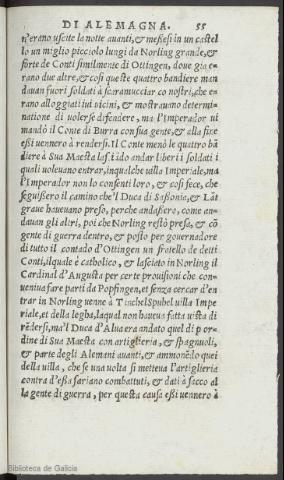 DI ALEMAGNA. 55
n'erano uscite la notte auanti, & messesi in un castel
lo un miglio picciolo lungi da Norling grande, &
forte de Conti similmente di Ottingen, doue gia e-
rano due altre, & cosi queste quattro bandiere man
dauan fuori soldati à scaramucciar co nostri, che er-
rano alloggiati iui uicini, & mostrauano determi-
natione di uolerse difendere, ma l'Imperador ui
mandò il Conte di Burra con sua gente, & alla fine
essi uennero à rendersi. Il Conte menò le quattro bã
diere à Sua Maesta lasciãdo andar liberi i soldati i
quali uoleuano entrar, in qualche uilla Imperiale, ma
l'Imperador non lo consenti loro, & cosi fece, che
seguissero il camino che'l Duca di Sassonia, & Lãt
graue haueuano preso, perche andassero, come an-
dauan gli altri, poi che Norling restò presa, & cõ
gente di guerra dentro, & posto per gouernadore
di tutto il contado d'Ottingen un fratello de detti
Conti, ilquale è catholico, & lasciato in Norling il
Cardinal d'Augusta per certe prouisioni che con-
ueniua fare parti da Popfingen, et senza cercar d'en
trar in Norling uenne à Tinchelspuhel uilla Impe
riale, et della legha, la qual non haueua fatta uista di
rẽdersi, ma'l Duca d'Alua era andato quel di p or-
dine di Sua Maesta con artiglieria, & spagnuoli,
& parte degli Alemani auanti, & ammonẽdo quei
della uilla, che se una uolta si metteua l'artiglieria
contra d'essa sariano combattuti, & dati à sacco al
la gente di guerra, per questa causa essi uennero à
Biblioteca de Galicia